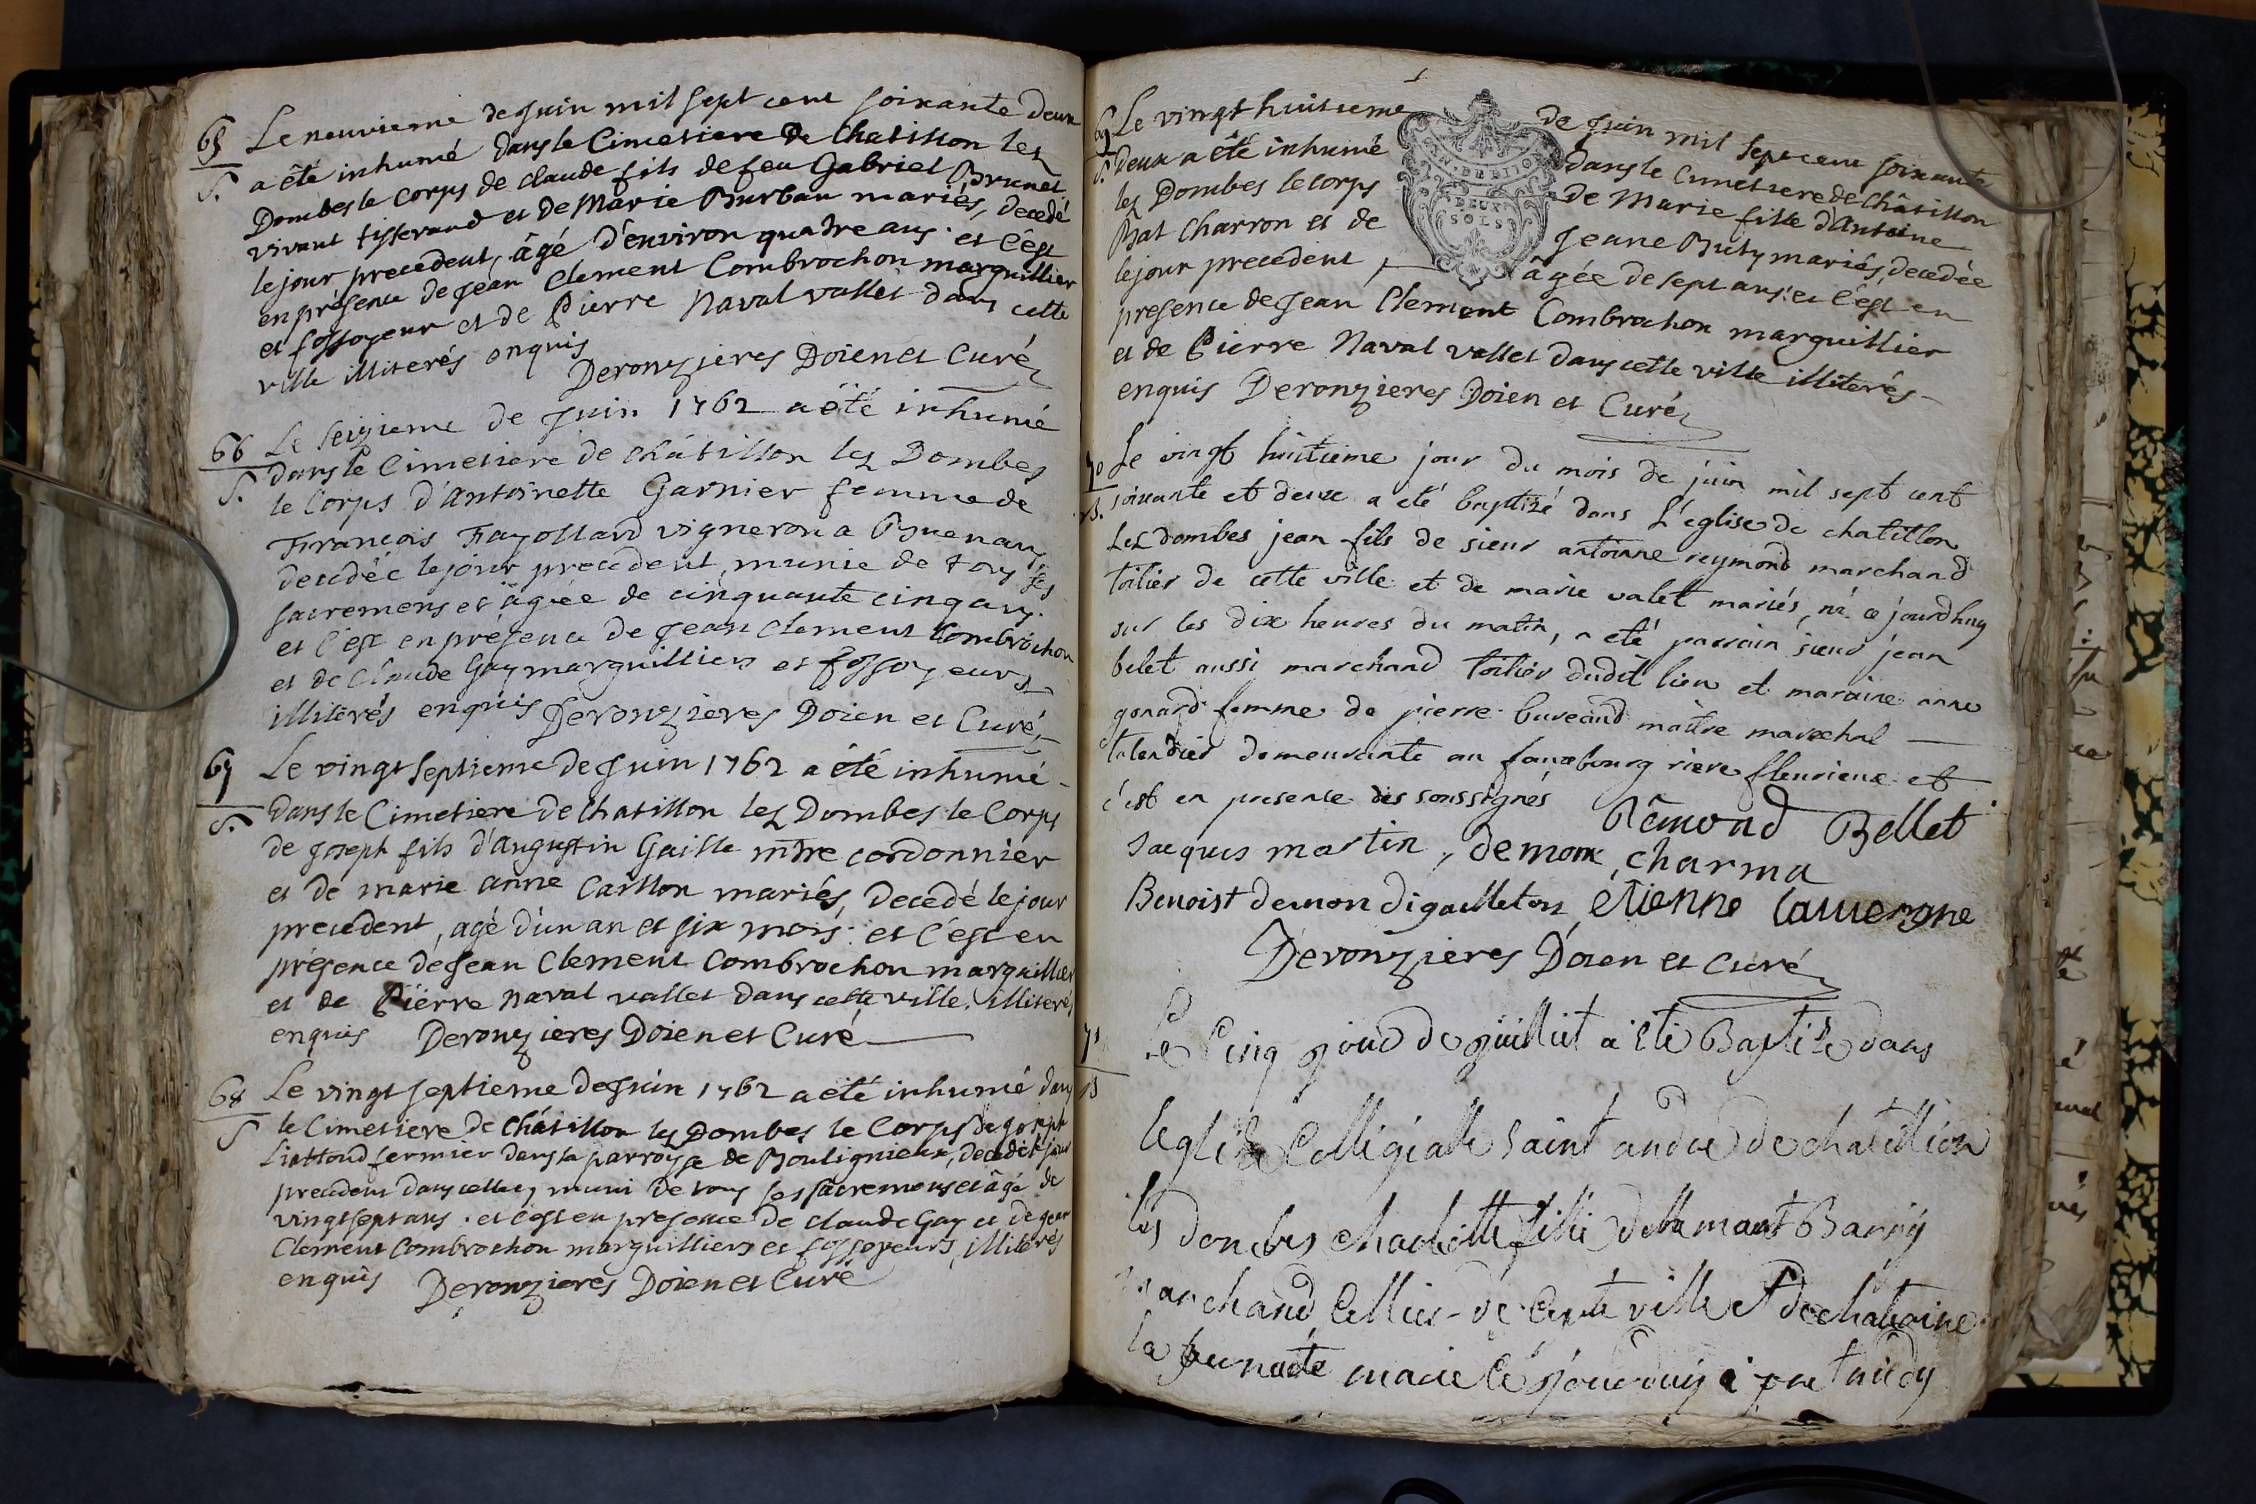 65
S.
Le neuvieme de Juin mil sept cent soixante deux
a êté inhumé dans le Cimetiere de Chatillon lez
Dombes le Corps de Claude fils de feu Gabriel Brunet
vivant tisserand et de Marie Burban mariés, decedé
le jour precedent, âgé d'environ quatre ans. et c'est
en présence de Jean Clement Combrochon marguillier
et fossoyeur et de Pierre Naval vallet dans cette
ville illiterés enquis
Deronzieres Doien et Curé
66
S.
Le Seizieme de Juin 1762 a êté inhumé
dans le Cimetiere de Châtillon lez Dombes
le Corps d'Antoinette Garnier femme de
François Fayollard vigneron a Buenans
decedée le jour precedent, munie de tous ses
sacremens et âgée de cinquante cinq ans.
et c'est en présence de Jean Clement Combrochon
et de Claude Gay marguilliers et fossoyeurs
illiterés enquis Deronzieres Doien et Curé
67
S.
Le vingt septieme de Juin 1762 a êté inhumé
dans le Cimetiere de Chatillon lez Dombes le Corps
de Joseph fils d'Augustin Gaille mtre cordonnier
et de marie anne Carillon mariés, decedé le jour
precedent, agé d'un an et six mois. et c'est en
présence de Jean Clement Combrochon marguillier
et de Pierre Naval vallet dans cette ville, illiterés
enquis Deronzieres Doien et Curé
68
S
Le vingt septieme de Juin 1762 a êté inhumé dans
le Cimetiere de Châtillon lez Dombes le Corps de Joseph
Liattoud fermier dans la parroisse de Bouligneux, decedé le jour
precedent dans celle cy, muni de tous ses sacremens et âgé de
vingt sept ans. et c'est en presence de Claude Gay et de Jean
Clement Combrochon marguilliers et fossoyeurs, illiterés
enquis Deronzieres Doien et Curé
69
S.
Le vingt huitieme de Juin mil sept cent soixante
deux a êté inhumé dans le Cimetiere de Châtillon
lez Dombes le corps de Marie fille d'Antoine
Bat Charron et de Jeane Buty mariés, decedée
le jour precedent, âgée de sept ans. et c'est en
presence de Jean Clement Combrochon marguillier
et de Pierre Naval vallet dans cette ville illiterés
enquis Deronzieres Doien et Curé
DEUX
SOLS
70
B.
Le vingt huitieme jour du mois de juin mil sept cent
soixante et deux a eté baptizé dans L'eglise de chatillon
Lez dombes jean fils de sieur antoinne reymond marchand
toilier de cette ville et de marie valet mariés, né ce jourdhuy
sur les dix heures du matin, a eté parrain sieur jean
belet aussi marchand toilier dudit lieu et maraine anne
gonard femme de pierre buveand maître marechal
talendier demeurante au fauxbourg riere fleurieux et
c'est en presence des soussignés Rêmond Bellet
Jacques martin, demonx, charma
Benoist demon digailleton etienne lauvergne
Deronzieres Doien et Curé
71
B
Le Cinq jour de juillet a Eté Baptizé dans
leglize Collegialle Saint andre de chatillion
les dombes charlotte fille de Barjy
marchand de Cette ville et de